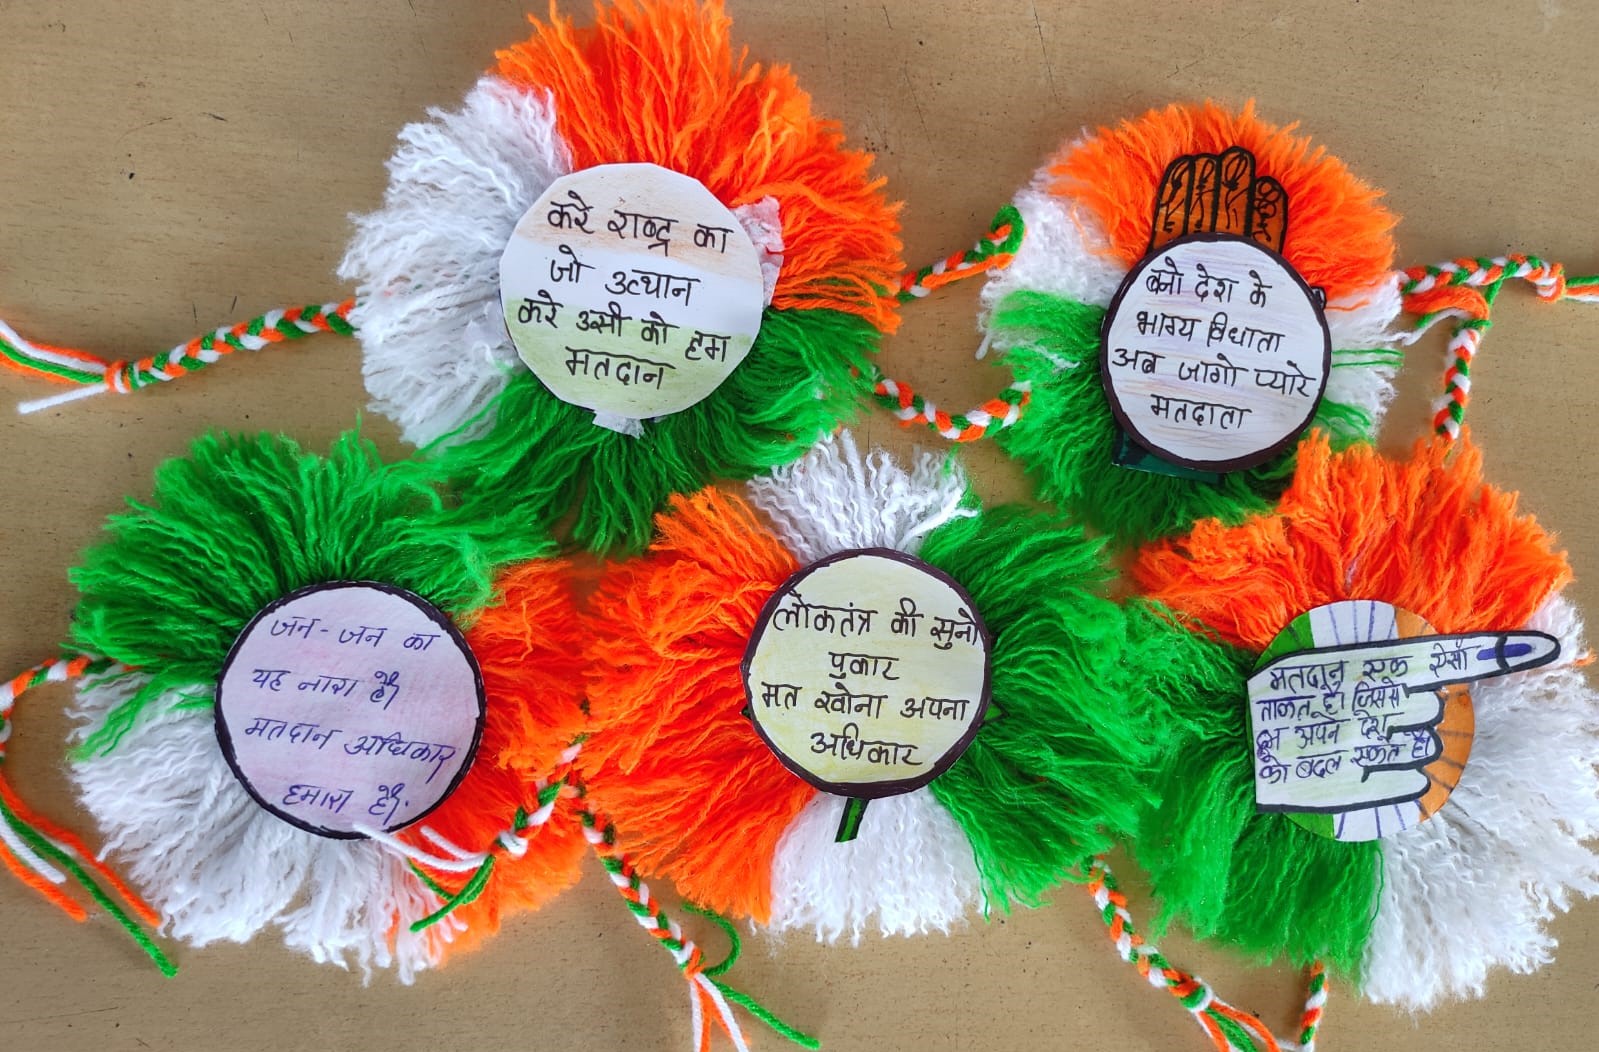 करे राष्ट्र का
जो उत्थान
करे उसी को हम
मतदान
बनो देश के
भाग्य विधाता
अब जागो प्यारे
मतदाता
जन-जन का
यह नारा है,
मतदान अधिकार
हमारा है.
लोकतंत्र की सुनो
पुकार
मत खोना अपना
अधिकार
मतदान एक ऐसी
ताकत है जिससे
हम अपने देश
को बदल सकते है।